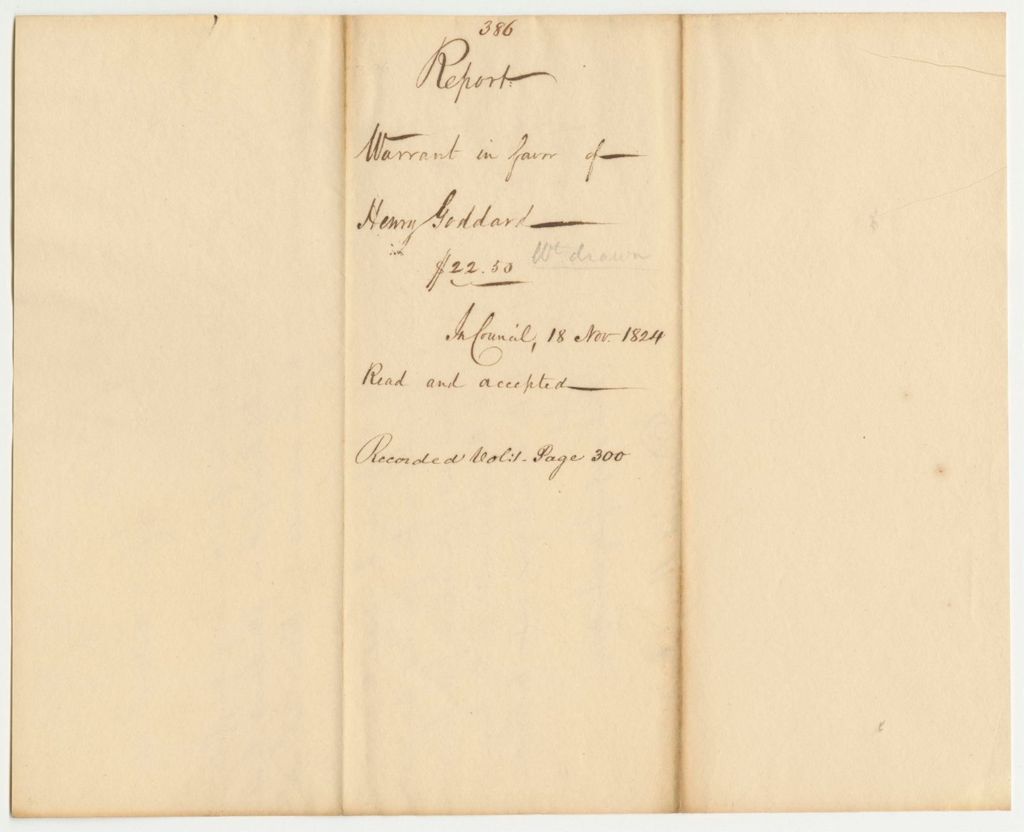 386
Report
Warrant in favor of
Henry Goddard
$22.50
Wt. drawn
In Council, 18 Nov. 1824
Read and accepted
Recorded Vol: 1 - Page 300